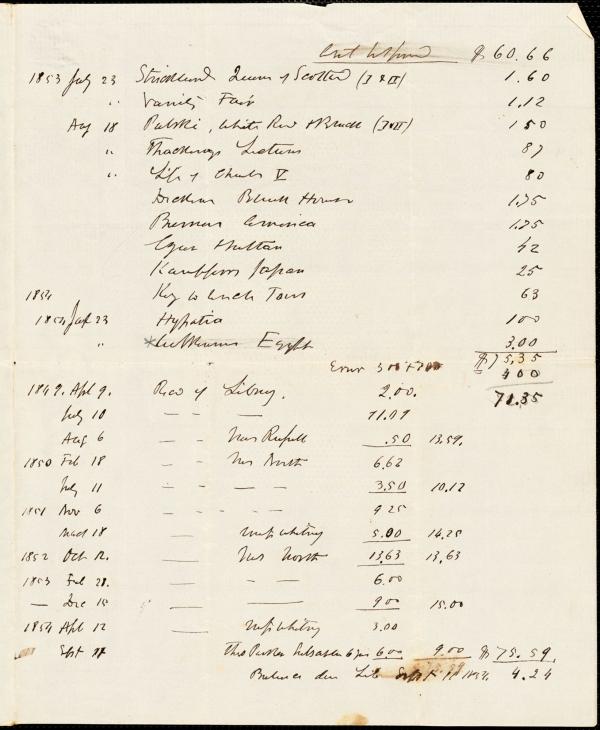 $60.66
1853 July 23 Strickland Queens of Scotland (I & II) 1.60
" Vanity Fair 1.12
Aug 18 Pulski, White Red & Black (I & II) 1 50
" Thackerays Lectures 87
" Life of Charles V 80
Dickens Bleak House 1.75
Bremer America 1.75
42
25
1854 Key to Uncle Toms 63
1854 23 Hypatia 100
" * Egypt 3.00
Error 3 00 $75.35
400
1849. Apl 9. Recd of Library. 2.00. 71.35
July 10 — — — 11.09
Aug 6 — - Mrs .50 13.59.
1850 Feb 18 — - Mrs North 6.62
July 11 - - — - 3.50 10.12
1851 Nov 6 — - - - - 9 25
18 — - Miss Whitney 5.00 14.25
1852 Oct 12. — - Mrs North 13.63 13,63
1853 Feb 21. — - — 6.00
— Dec 15 — — 9 00 15.00
1854 Apl 12 — Miss Whitney 3.00
Sept 6.00 9.00 $75.59
Balance due Lib Sept 1854. 4.24